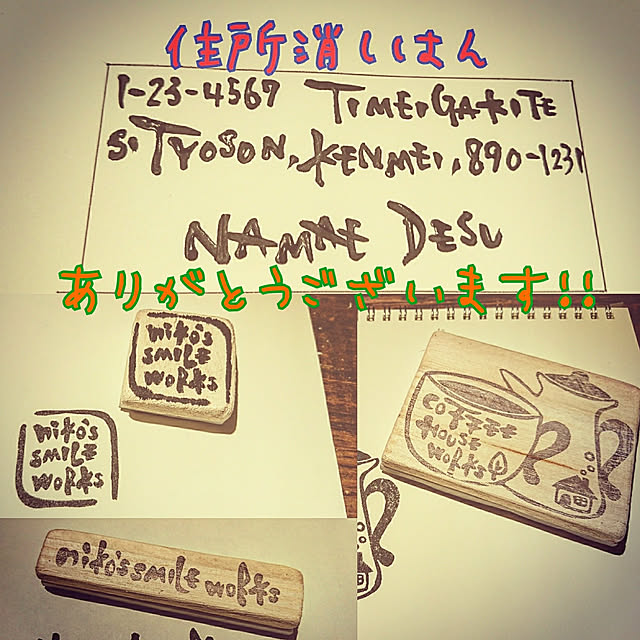 住所消しはん
1-23-4567 TIMEIGAKITE
SITYOSON,KENMEI,890-1231
NAMAE DESU
ありがとうございます!!
niko's
smile
works
niko's
smile
works
COFFEE
HOUSE
WORKS
niko's smile works